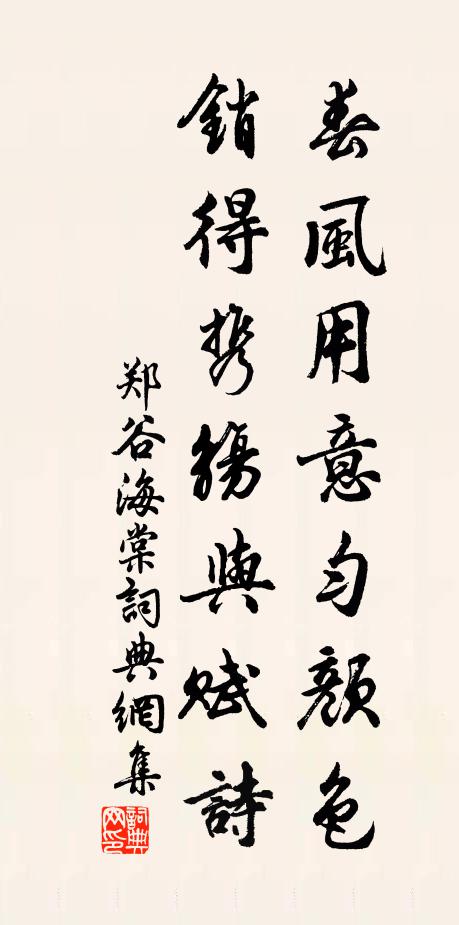 春風用意勻顏色
銷得携觴與賦詩
郑谷海棠詞典網集
詞典网印